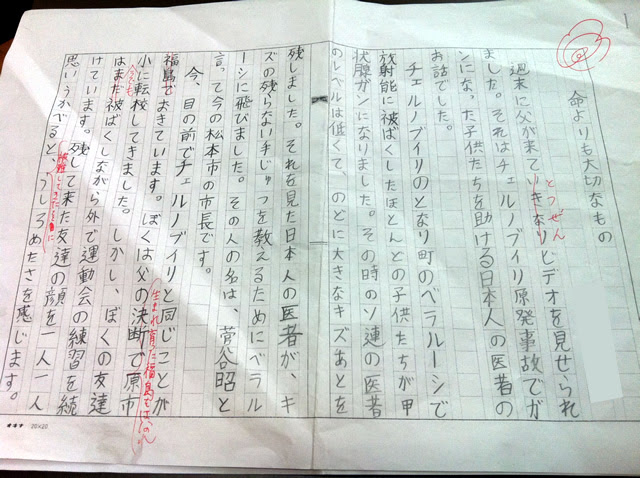 命よりも大切なもの
週末に父が来ていきなりビデオを見せられ
とつぜん
ました。それはチェルノブイリ原発事故でガ
ンになった子供たちを助ける日本人の医者の
お話でした。
チェルノブイリのとなり町のベラルーシで
放射能に被ばくしたほとんどの子供たちが甲
状腺ガンになりました。その時のソ連の医者
のレベルは低くて、のどに大きなキズあとを
残しました。それを見た日本人の医者が、キ
ズの残らない手じゅつを教えるためにベラル
ーシに飛びました。その人の名は、菅谷昭と
言って今の松本市の市長です。
今、目の前でチェルノブイリと同じことが
福島でおきています。ぼくは父の決断で原市
生まれ育った福島を
小に転校してきました。しかし、ぼくの友達
はまだ被ばくしながら外で運動会の練習を続
けています。残して来た友達の顔を一人一人
思いうかべると、うしろめたさを感じます。
★るす 20×20